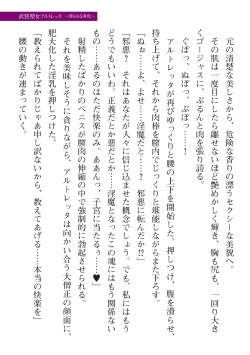 武装聖女アルトレッタ ～穢れゆく神聖～
元の清楚な美しさから、危険な香りの漂うセクシーな美貌へ。
その肌は一度目にしたら離せないほど艶めかしく輝き、胸も尻も、一回り大き
くゴージャスに、ぷるんと肉を張り誇る。
「ぬっ……ぷぅ、ぬっぷぅ……！」
アルトレッタが再びゆっくりと腰の上下を開始した。押しつけ、腹を滑らせ、
持ち上げて、それから肉棒を膣内でじっくりと堪能しながらまた下ろす。
「ぬぉ……よ、よせ……淫魔だと……？　邪悪に転んだか!?」
「邪悪？　それはあなたが人々に信じ込ませた概念でしょう。でも、私にはもう
……正義だとか悪だとか……淫魔となったこの魂にはもう関係ない
も の……あるのはただ快楽のみ。あああんっ、子宮に当たるぅ……♥」
射精したばかりのペニスが膣肉の伸縮の中で強制的に勃起させられる。
それを美味しそうに貪りながら、アルトレッタは向かい合う大僧正の顔面に、
肥大化した淫乳を押しつけた。
「教えられてばかりじゃあ申し訳ないから、教えてあげる……本当の快楽を」
腰の動きが速まっていく。